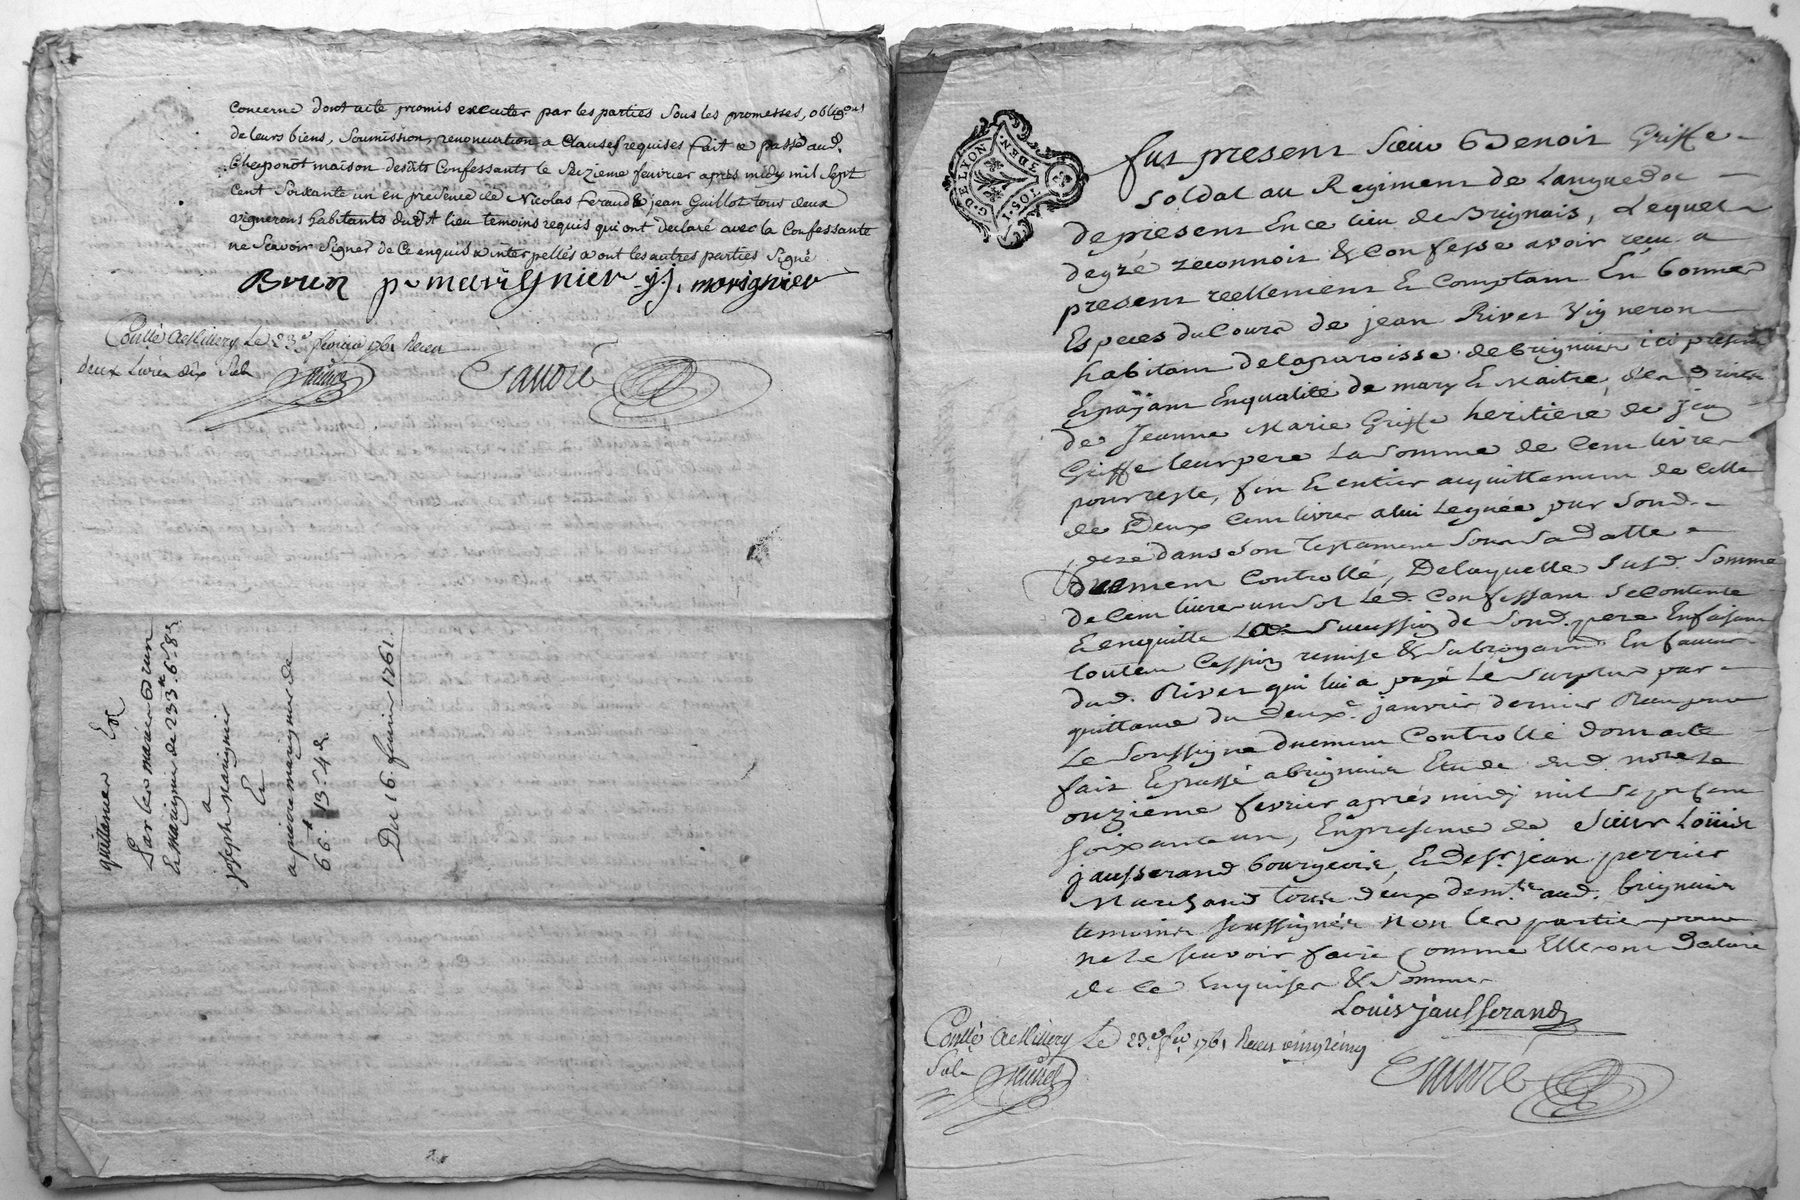 concerne dont acte promis executer par les parties sous les promesses, obligons
de leurs biens, soumissions, renonciations & clauses requises fait & passé aud.
Cheponost maison desdits confessants le seizieme fevrier apres midy mil sept
cent soixante un en presence de Nicolas feraud & jean Guillot tous deux
vignerons habitants dudt lieu temoins requis qui ont declaré avec la confessante
ne scavoir signer de ce enquis & interpellés & ont les autres parties signé
Brun p marignier j. marignier
Contlé à Millery Le 23e fevrier 1761 Receu
deux Livres dix sols
quittance
Par les mariés Brun
& Marignier de 233tt 6s 8d
a
joseph Marignier
Et
a pierre marignier de
66tt 13s 4d
Du 16 fevrier 1761
G. DE LYON. 3 DEN. 1 SOL
fut present Sieur Benoit Griffe
soldat au Regiment de Languedoc
de present En ce lieu de Brignais, Lequel
de gré reconnoit & confesse avoir reçu a
present reellement & comptant En bonnes
Especes du Cours de jean Rivet Vigneron
habitant de la paroisse de brignais ici present
& payant En qualité de mary & Maitre des droits
de Jeanne Marie Griffe heritiere de jean
Griffe leur pere La somme de Cent livres
pour reste, fin & entier acquittement de celle
de Deux Cent livres a lui Leguée par sond.
pere dans son Testament sous sa datte
duement Controllé, De laquelle susd. somme
de Cent livres un sol Led. Confessant se contente
& en quitte La succession de sond. pere En faisant
toutes Cession remise & subrogaon En faveur
dud. Rivet qui lui a payé Le surplus par
quittance du deuxe janvier dernier Receu par
Le soussigné duement Controllé dont acte
fait & passé a brignais Etude dud. Nore Le
onzieme fevrier après midy mil sept cent
soixante un, En presence de Sieur Loüis
jausserand bourgeois, & de Sr. jean perrier
Marchand tous deux demts aud. brignais
temoins soussignés Non les parties pour
ne le scavoir faire comme Elle ont Declaré
de ce Enquises & sommées
Louis jausserand
Contlé à Millery Le 23e fer 1761 Receu vingt cinq
sols